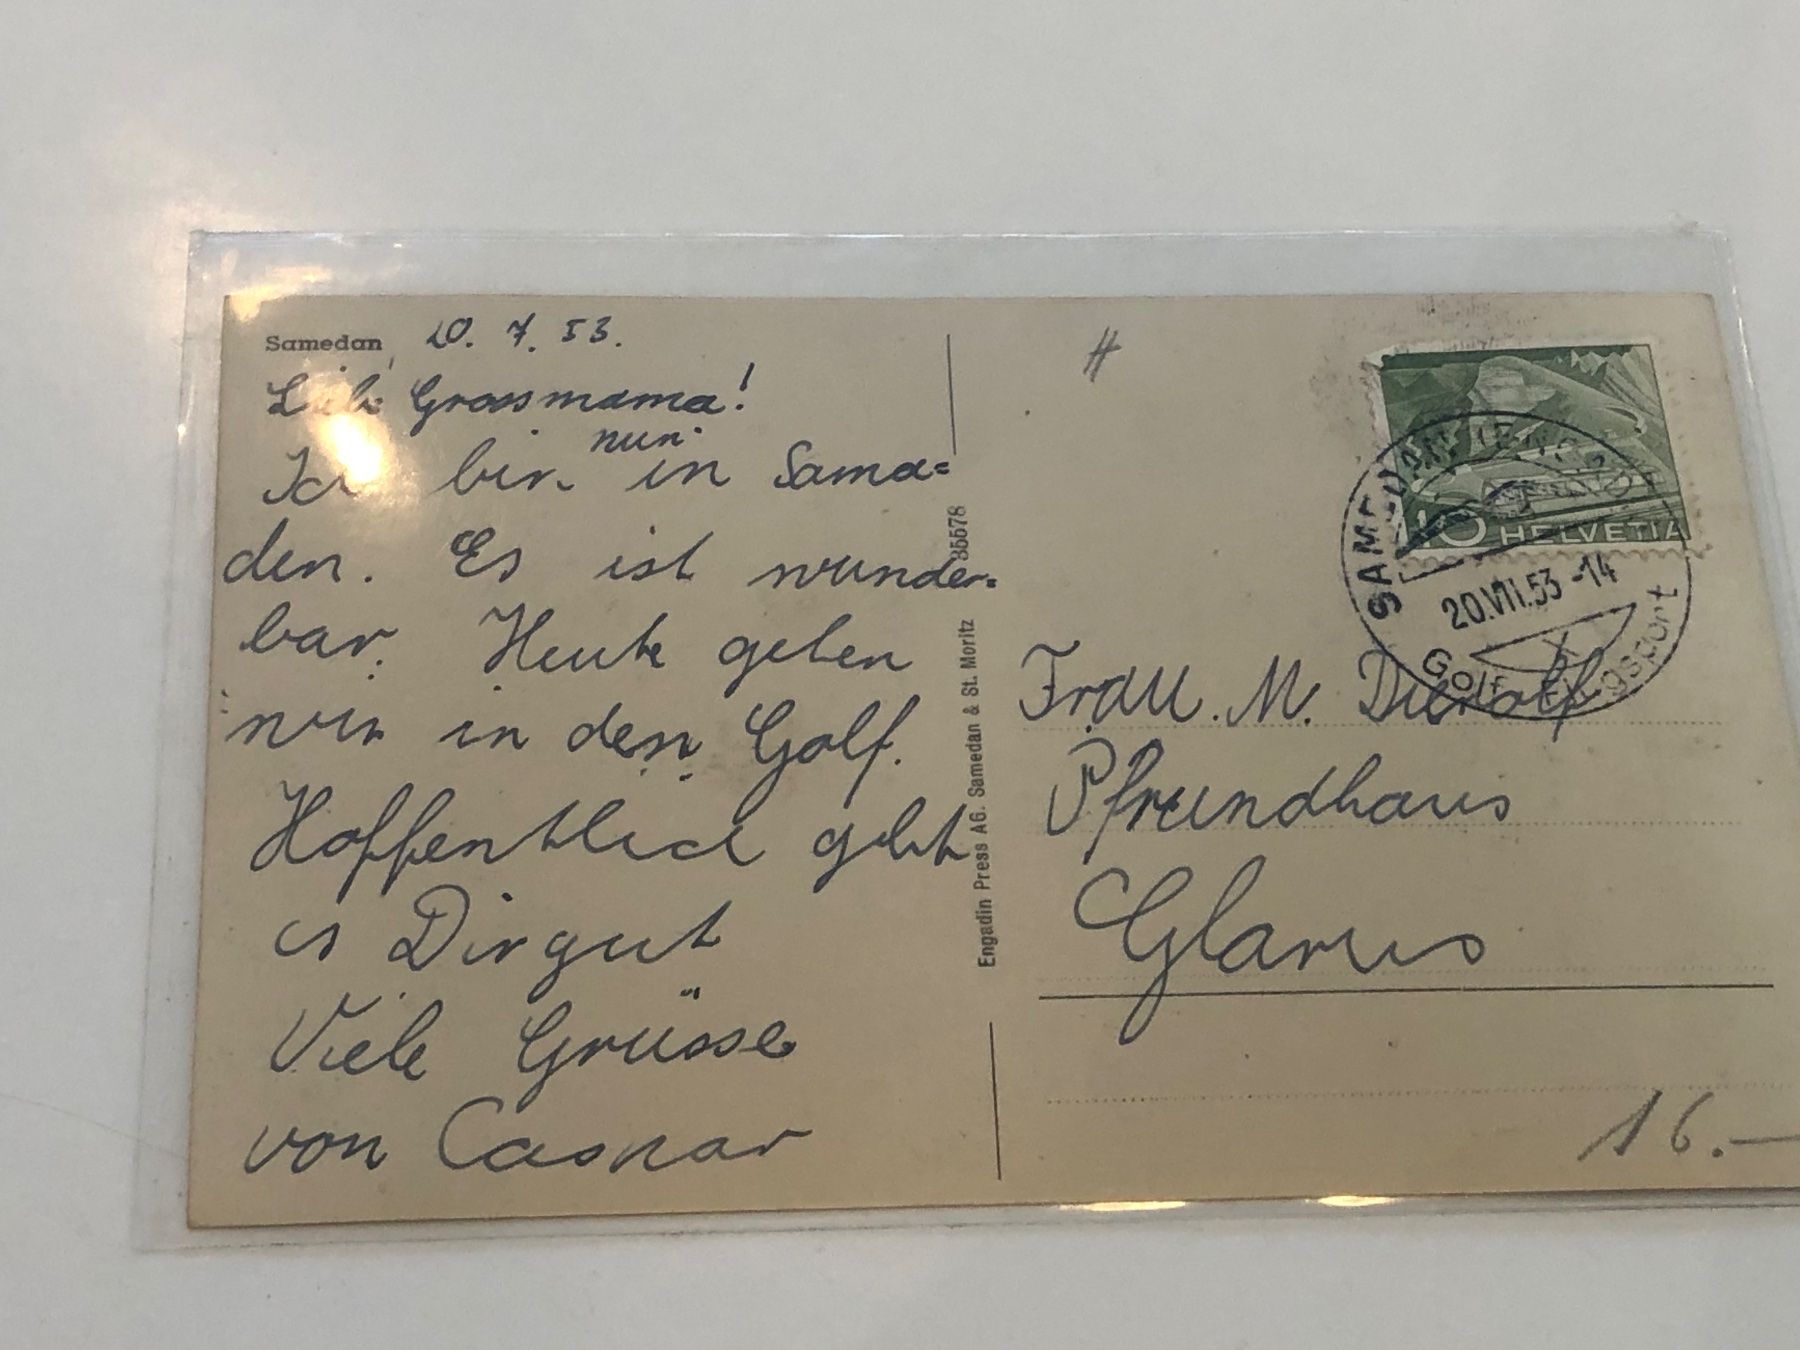 Samedan, 20. 7. 53.
Liebe Grossmama!
Ich bin nun in Sama=
den. Es ist wunder=
bar. Heute gehen
wir in den Golf.
Hoffentlich geht
es Dir gut
Viele Grüsse
von Caspar
35578
Engadin Press AG. Samedan & St. Moritz
#
10 HELVETIA
SAMEDAN
20.VII.53-14
Golf Flugsport
Frau. M.
Pfrundhaus
Glarus
16.—